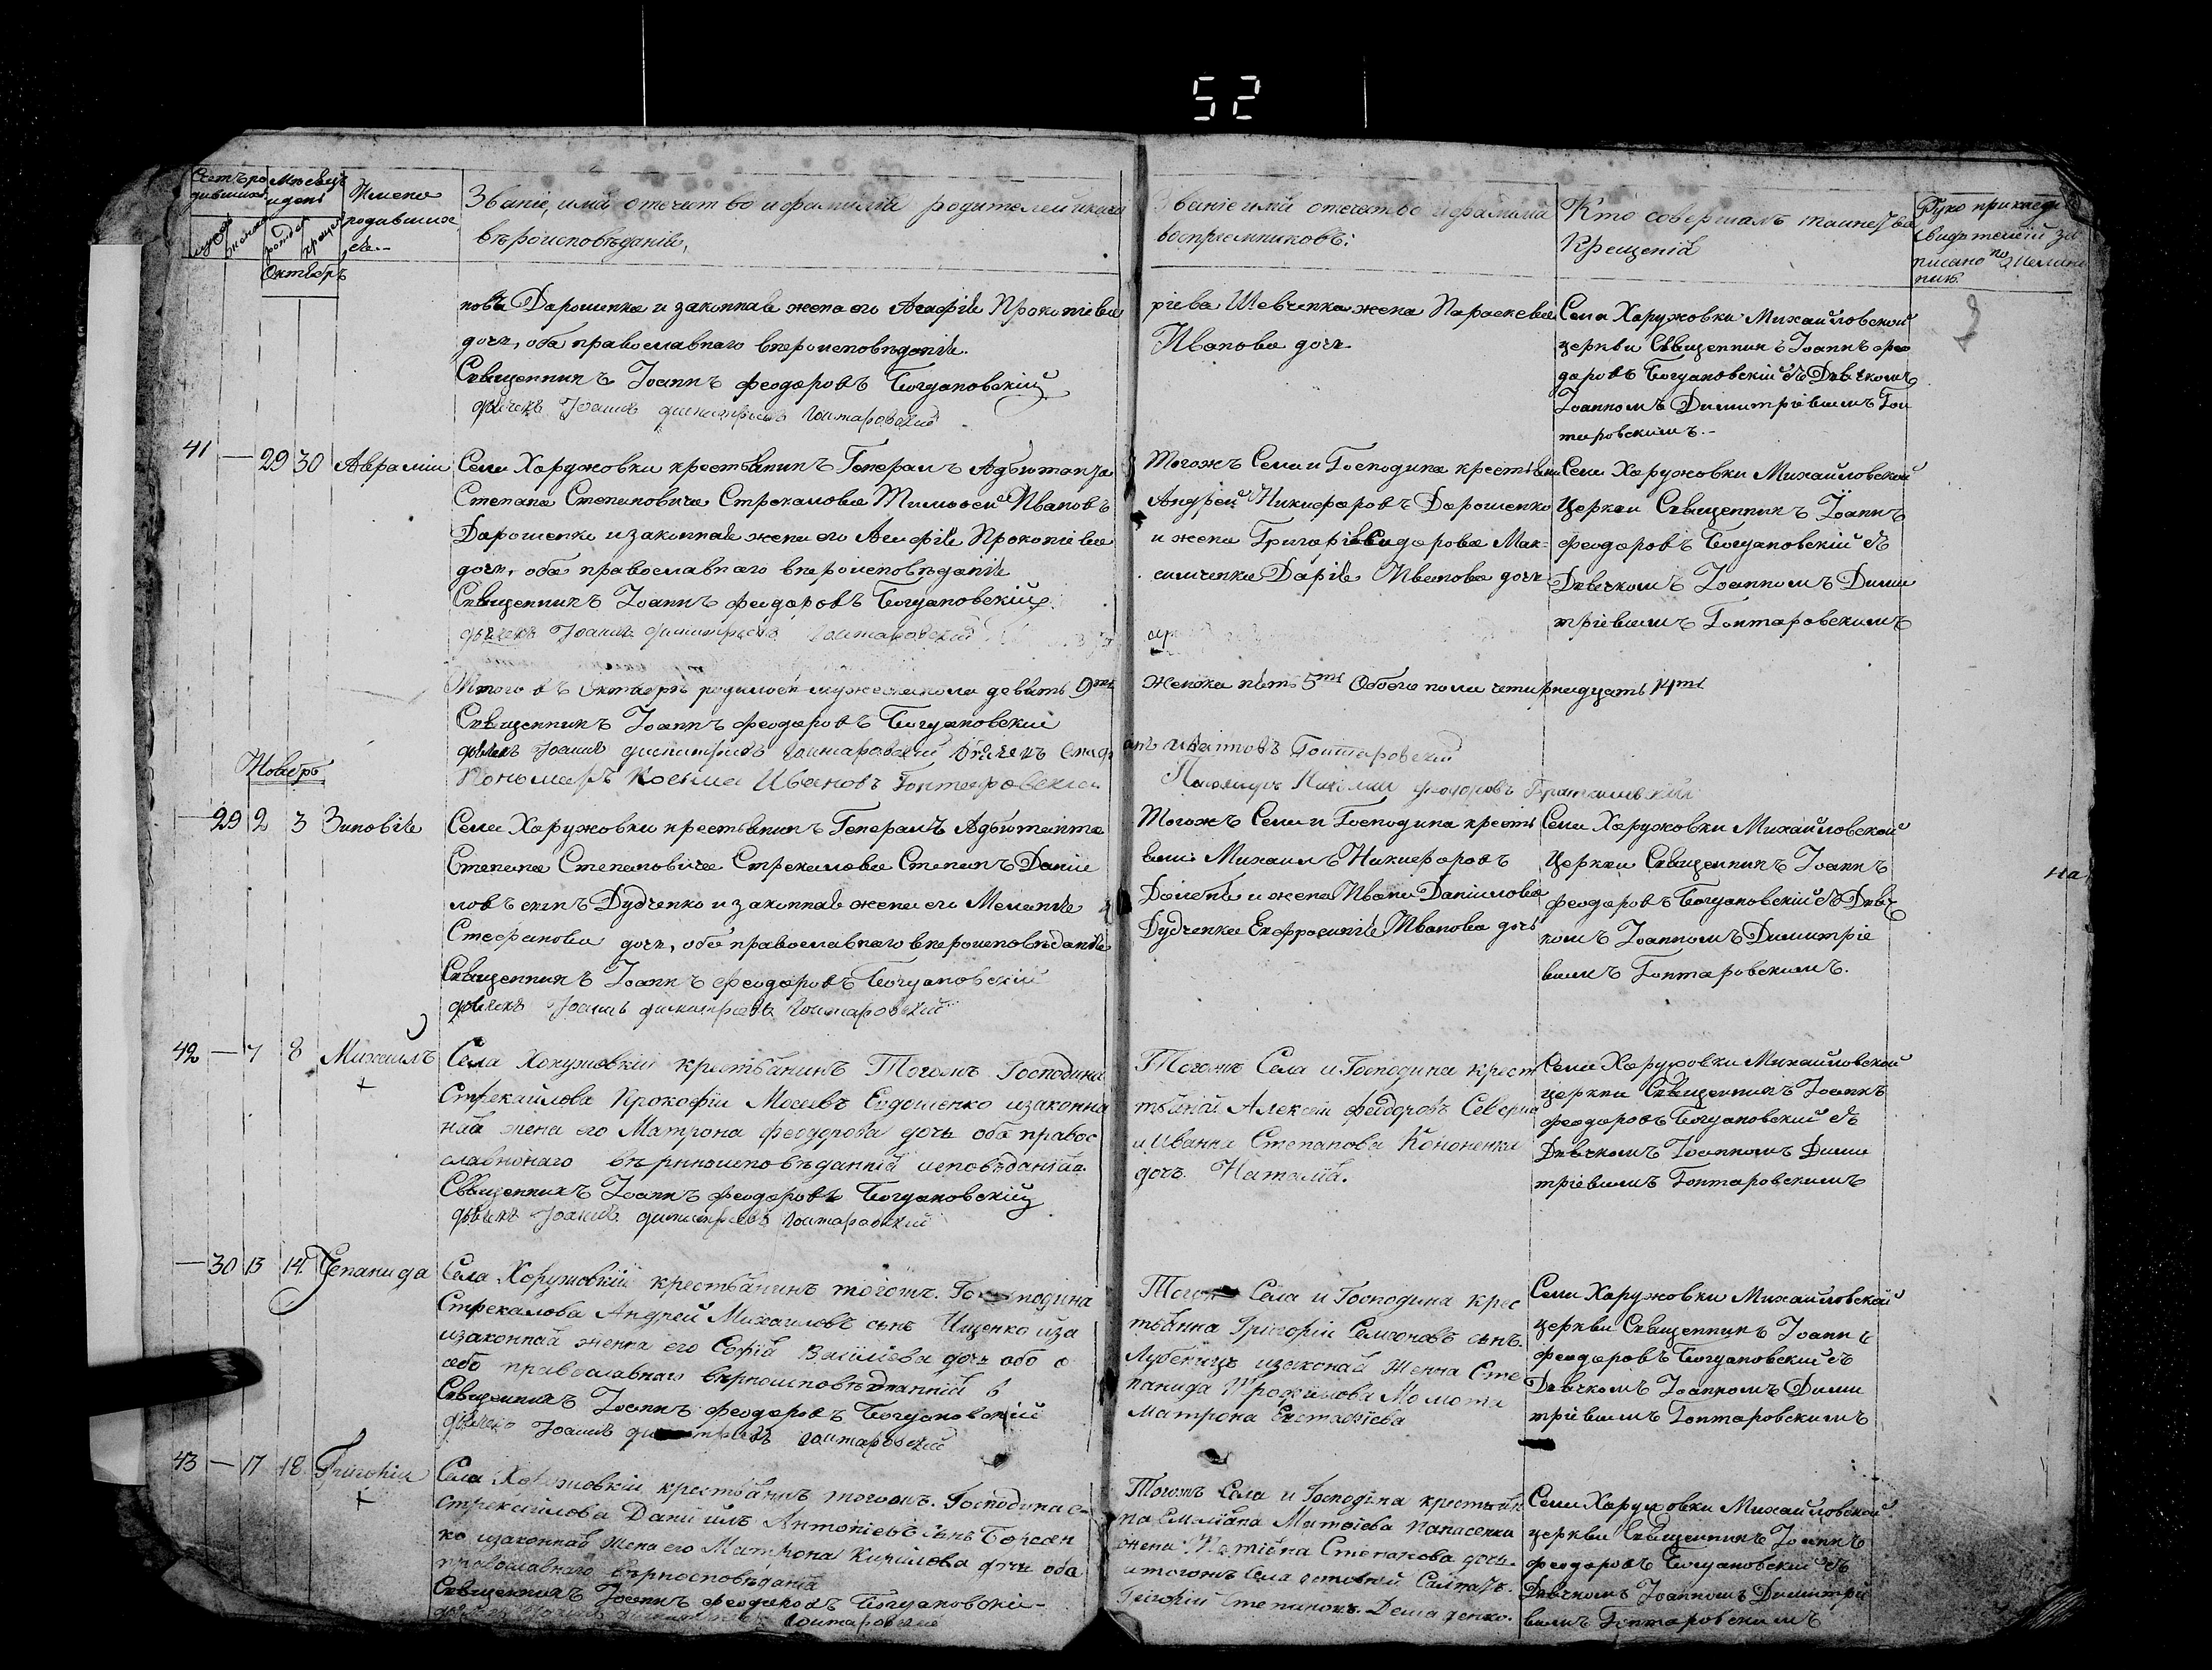 52
Счетъ ро Мѣсяцъ
дившихся и день
Имена
родившихся
Званіе, имя отечество и фамилия родителей и какого
вѣроисповѣданія,
Званіе имя отечество и фамилия
воспреемниковъ:
Кто совершалъ таинство
Крещенія
Октябръ
новъ Дарошенка и законная жена его Агафія Прокопіева
дочь, оба православнаго вѣроисповѣданія.
Священникъ Іоаннъ Феодоровъ Богдановскій
дьячекъ Іоаннъ Димитріевъ Гонтаровскій
ріева Шевченка жена Параскева
Иванова дочь
Села Харужовки Михайловской
церкви Священникъ Іоаннъ Фео
даровъ Богдановскій съ Дьячкомъ
Іоанномъ Димитріевымъ Гон
таровскимъ.-
41 — 29 30 Аврамии
Села Харужовки крестьянинъ Генералъ Адъютанта
Степана Степановича Стрекалова Тимофей Ивановъ
Дарошенко и законная жена его Агафія Прокопіева
дочь, оба православнаго вѣроисповѣданія
Священникъ Іоаннъ Феодоровъ Богдановскій
дьячекъ Іоаннъ Димитріевъ Гонтаровскій
Тогожъ Села и Господина крестьяни
Андрей Никифоровъ Дарошенко
и жена Григорія Сидарова Мак-
симченка Дарія Иванова дочь
Села Харужовки Михайловской
Церкви Священникъ Іоаннъ
Феодоровъ Богдановскій съ
Дьячкомъ Іоанномъ Дими
тріевымъ Гонтаровскимъ
Итого въ Октябрѣ родилось мужеска пола девять 9ть
Женска пять 5ть Обоего пола четырнадцать 14ть
Священникъ Іоаннъ Феодоровъ Богдановскій
дьячекъ Іоаннъ Димитріевъ Гонтаровскій Дьячекъ
Ивановъ Гонтаровскій
Пономарь Косьма Ивановъ Гонтаровскій
Ноябръ
— 29 2 3 Зиновія
Села Харужовки крестьянинъ Генералъ Адъютанта
Степана Степановича Стрекалова Степанъ Даніи
ловъ сынъ Дудченко и законная жена его Меланія
Стефанова дочь, оба православнаго вѣроисповѣданія
Священникъ Іоаннъ Феодоровъ Богдановскій
дьячекъ Іоаннъ Димитріевъ Гонтаровскій
Тогожъ Села и Господина кресть
янинъ Михаилъ Никифоровъ
и жена Ивана Даніилова
Дудченка Евфросинія Иванова дочь
Села Харужовки Михайловской
Церкви Священникъ Іоаннъ
Феодоровъ Богдановскій съ Дьяч
комъ Іоанномъ Димитріе
вымъ Гонтаровскимъ.
на
42 — 7 8 Михаилъ
Села Хоружовкіи крестьянинъ Тогожъ Господина
Стрекаилова Прокофіи Евдошенко и законна
ная жена его Матрона Феодорова дочь оба правос
славнонаго исповѣданія.
Священникъ Іоаннъ Феодоровъ Богдановскій
дьячекъ Іоаннъ Димитріевъ Гонтаровскій
Тогожъ Села и Господина крест
Алексѣй Феодоровъ
и Иванна Степанова Кононенка
дочь. Наталія.
Села Харужовки Михайловской
церкви Священникъ Іоаннъ
Феодоровъ Богдановскій съ
Дьячкомъ Іоанномъ Дими
тріевымъ Гонтаровскимъ
— 30 13 14 Степанида
Села Хоружовкіи крестьянинъ тогожъ Господина
Стрекалова Андрей Михаиловъ сынъ Ищенко иза
изаконная женна его Софія Василіева дочь обо о
обо православнаго
Священникъ Іоаннъ Феодоровъ Богдановскій
дьячекъ Іоаннъ Гонтаровскій
Села и Господина крес
Грігорій Семіоновъ сынъ.
изаконая женна Сте
панида Трофимова Момота
Матрона Евстафіева
Села Харужовки Михайловской
церкви Священникъ Іоаннъ
Феодоровъ Богдановскій съ
Дьячкомъ Іоанномъ Дими
тріевымъ Гонтаровскимъ
43 — 17 18 Григоріи
Села крестьянинъ тогожъ. Господина С-
стрекаилова Даниилъ Антоніевъ сынъ
ко изаконная жена его Матрона Кирилова дочь оба
православнаго
Священникъ Іоаннъ Феодоровъ Богдановскій
Гонтаровскій
Тогожъ Села и Господіна крестьян
на Емиліана Панасенка
жена Степанова дочь.
и тогожъ Села
Грігорій Степановъ.
Села Харужовки Михайловской
церкви Священникъ Іоаннъ
Феодоровъ Богдановскій съ
Дьячкомъ Іоанномъ Димитріе
вымъ Гонтаровскимъ